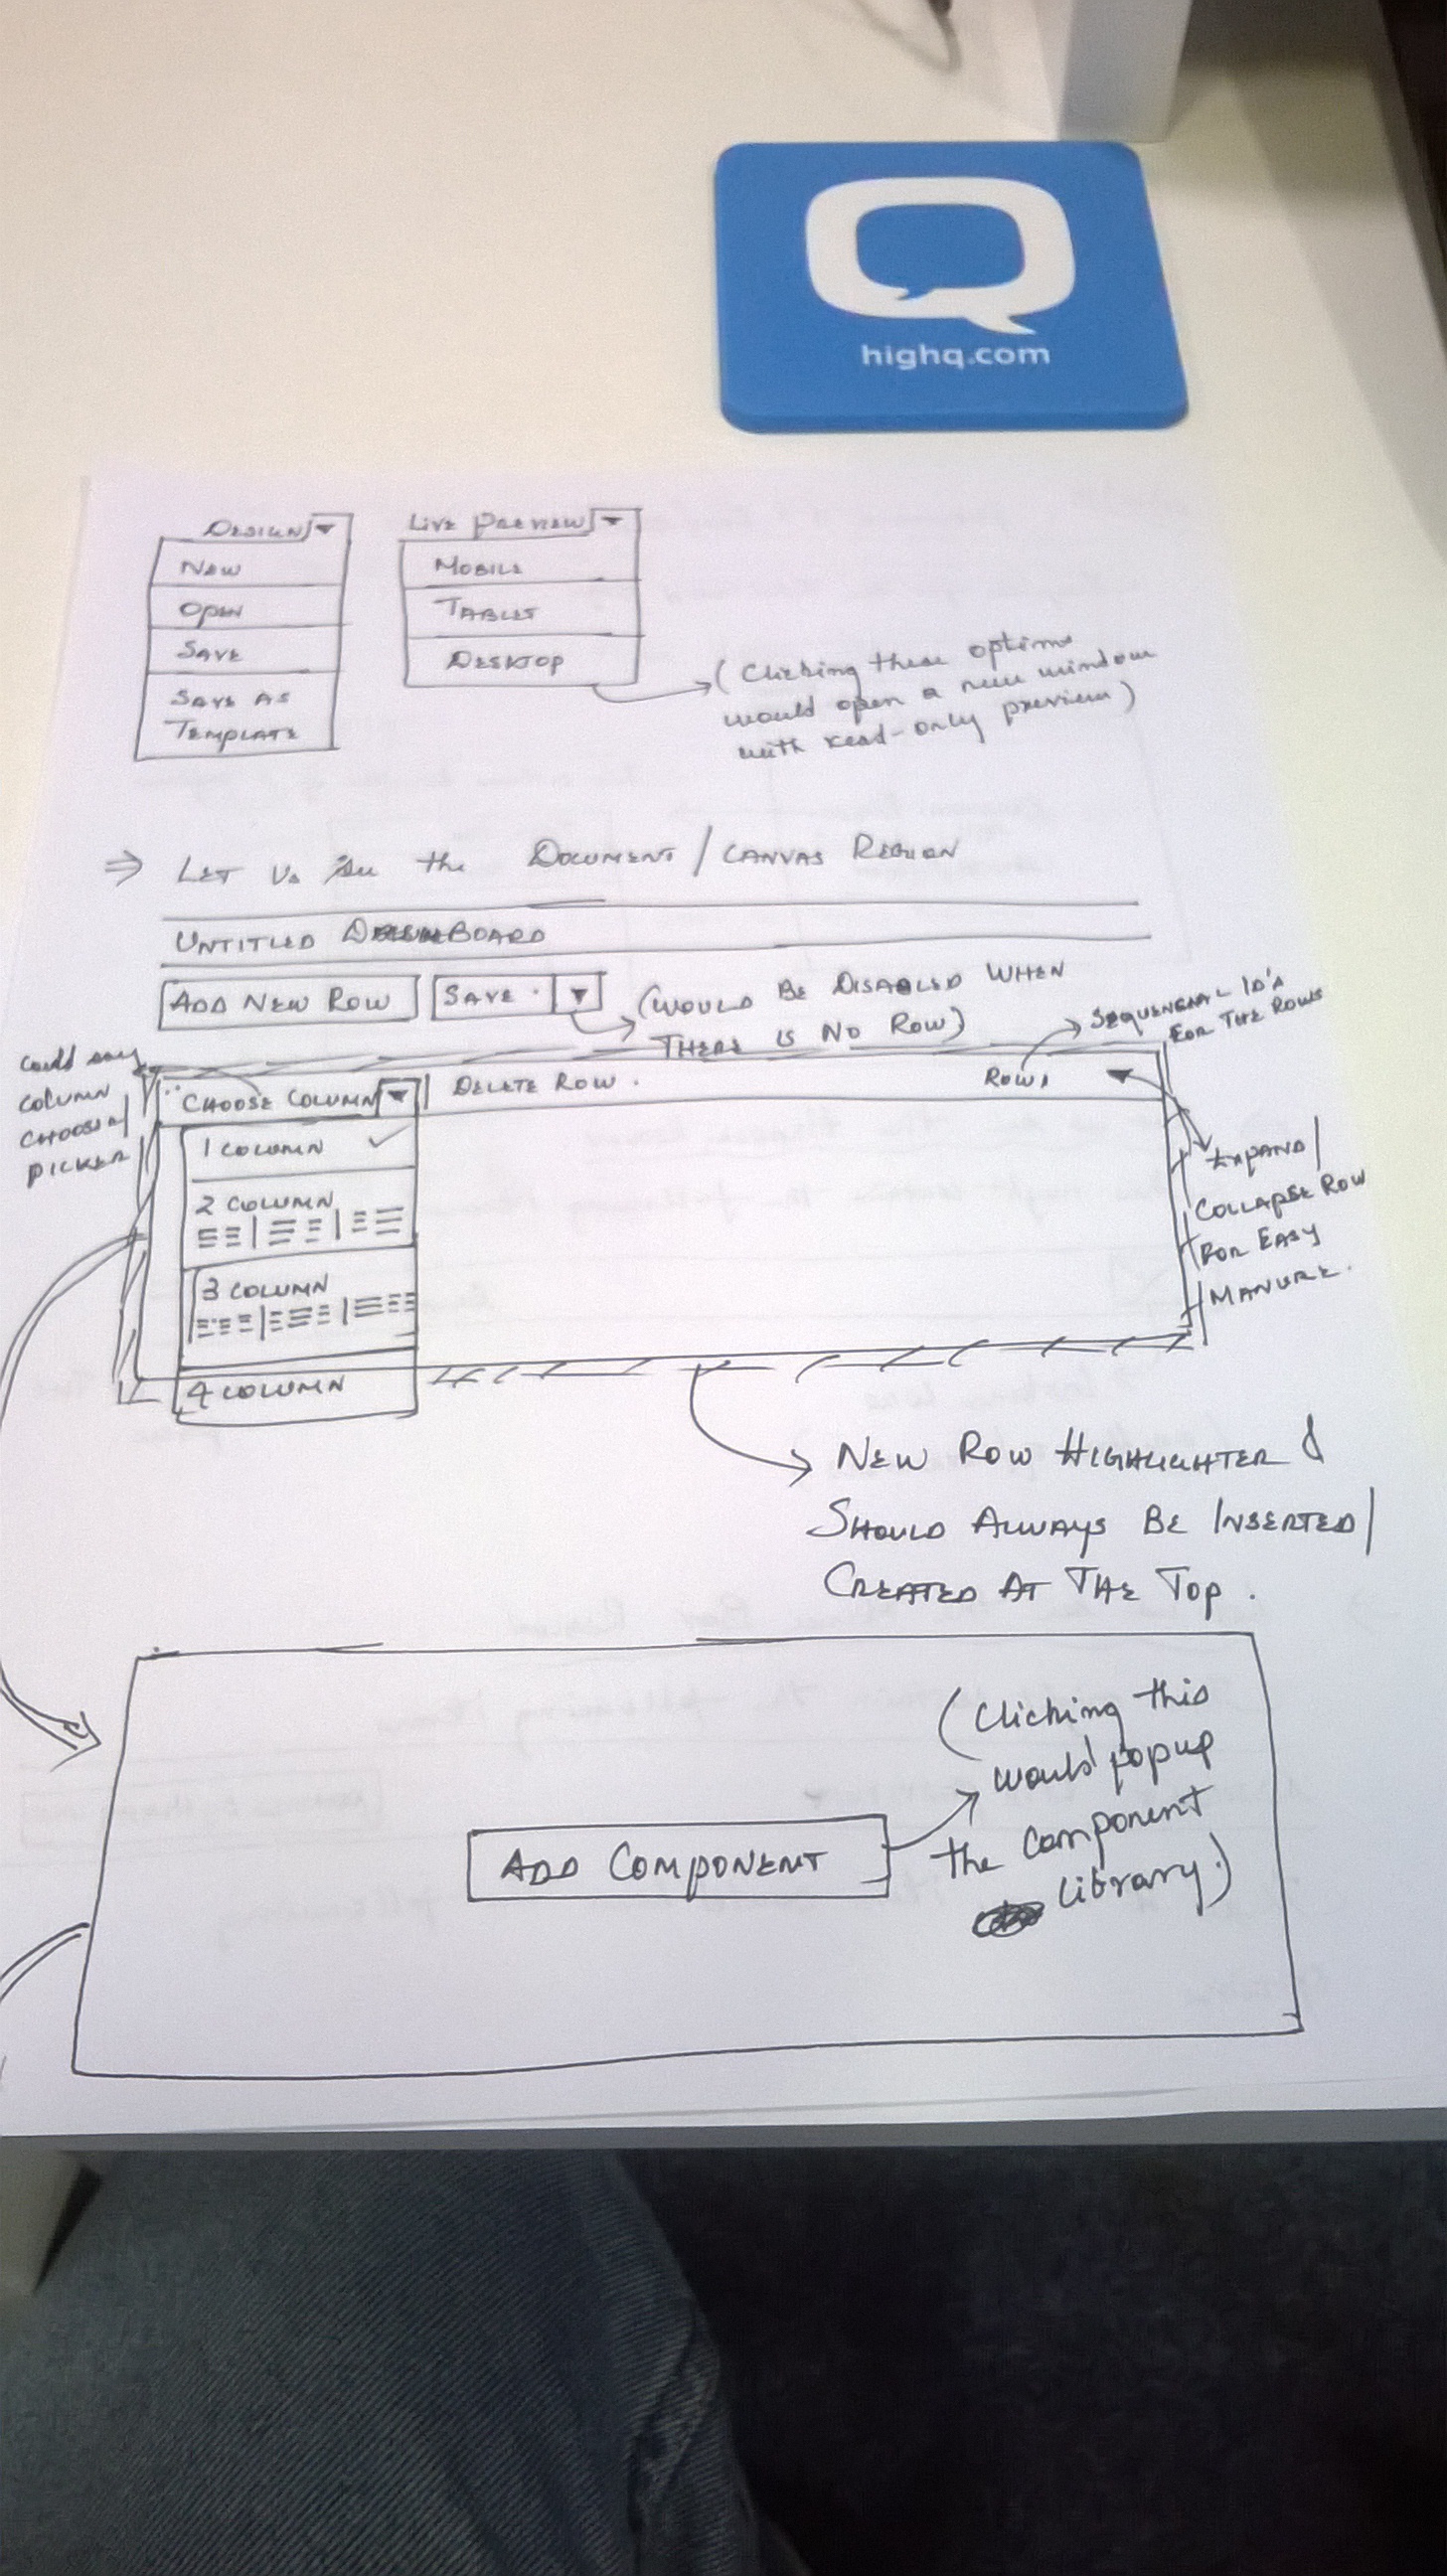 highq.com
DESIGN
NEW
OPEN
SAVE
SAVE AS
TEMPLATE
LIVE PREVIEW
MOBILE
TABLET
DESKTOP
(Clicking these options
would open a new window
with read-only preview)
⇒ LET US see the DOCUMENT / CANVAS REGION
UNTITLED DASHBOARD
ADD NEW ROW
SAVE
(WOULD BE DISABLED WHEN
THERE IS NO ROW)
SEQUENTIAL ID'S
FOR THE ROWS
could say
COLUMN
CHOOSER/
PICKER
CHOOSE COLUMN
DELETE ROW.
ROW 1
1 COLUMN ✓
2 COLUMN
3 COLUMN
4 COLUMN
EXPAND/
COLLAPSE ROW
FOR EASY
NEW ROW HIGHLIGHTER &
SHOULD ALWAYS BE INSERTED/
CREATED AT THE TOP.
ADD COMPONENT
(Clicking this
would popup
the component
library.)